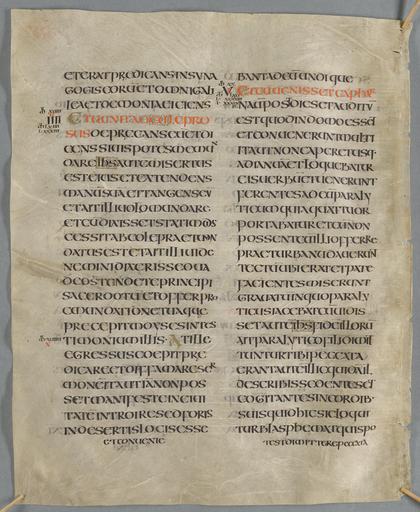 ETERATPREDICANSINSYNA
GOGISEORUMETOMNIGALI
LEAETDEMONIAEICIENS
ETUENITADEUMLEPRO
SUSDEPRECANSEUMETDI
CENSSIUISPOTESMEMU
DAREIHSAUTEMMISERTUS
ESTEIUSETEXTENDENS
MANUSUAETTANGENSEU
ETAITILLIUOLOMUNDARE
ETCUMDIXISSETSTATIMDIS
CESSITABEOLEPRAETMUN
DATUSESTETAITILLIUIDE
NEMINIDIXERISSEDUA
DEOSTENDETEPRINCIPI
SACERDOTUMETOFFERPRO
EMUNDATIONETUAQUE
PRECEPITMOYSESINTES
TIMONIUMILLIS ATILLE
EGRESSUSCOEPITPRE
DICAREETDIFFAMARESER
MONEMITAUTIAMNONPOS
SETMANIFESTEINCIUI
TATEINTROIRESEDFORIS
INDESERTISLOCISESSE
ETCONUENIE
BANTADEUMUNDIQUE
ETCUMUENISSETCAPHAR
NAUMPOSTDIESETAUDITU
ESTQUODINDOMOESSET
ETCONUENERUNTMULTI
ITAUTNONCAPERETUSQ
ADIANUAETLOQUEBATUR
EISUERBUMETUENERUNT
FERENTESADEUMPARALY
TICUMQUIAQUATTUOR
PORTABATURETCUMNON
POSSENTEUMILLIOFFERRE
PRAETURBANUDAUERUN
TECTUUBIERATETPATE
FACIENTESMISERUNT
GRABATUMINQUOPARALY
TICUSIACEBATCUMUIDIS
SETAUTEIHSFIDEILLORU
AITPARALYTICOFILIDIMIT
TUNTURTIBIPECCATA
ERANTAUTEMILLICQUIDA
DESCRIBISSEDENTESET
COGITANTESINCORDIB
SUISQUIDHICSICLOQUI
TURBLASPHEMATQUISPO
TESTDIMITTEREPECCATA